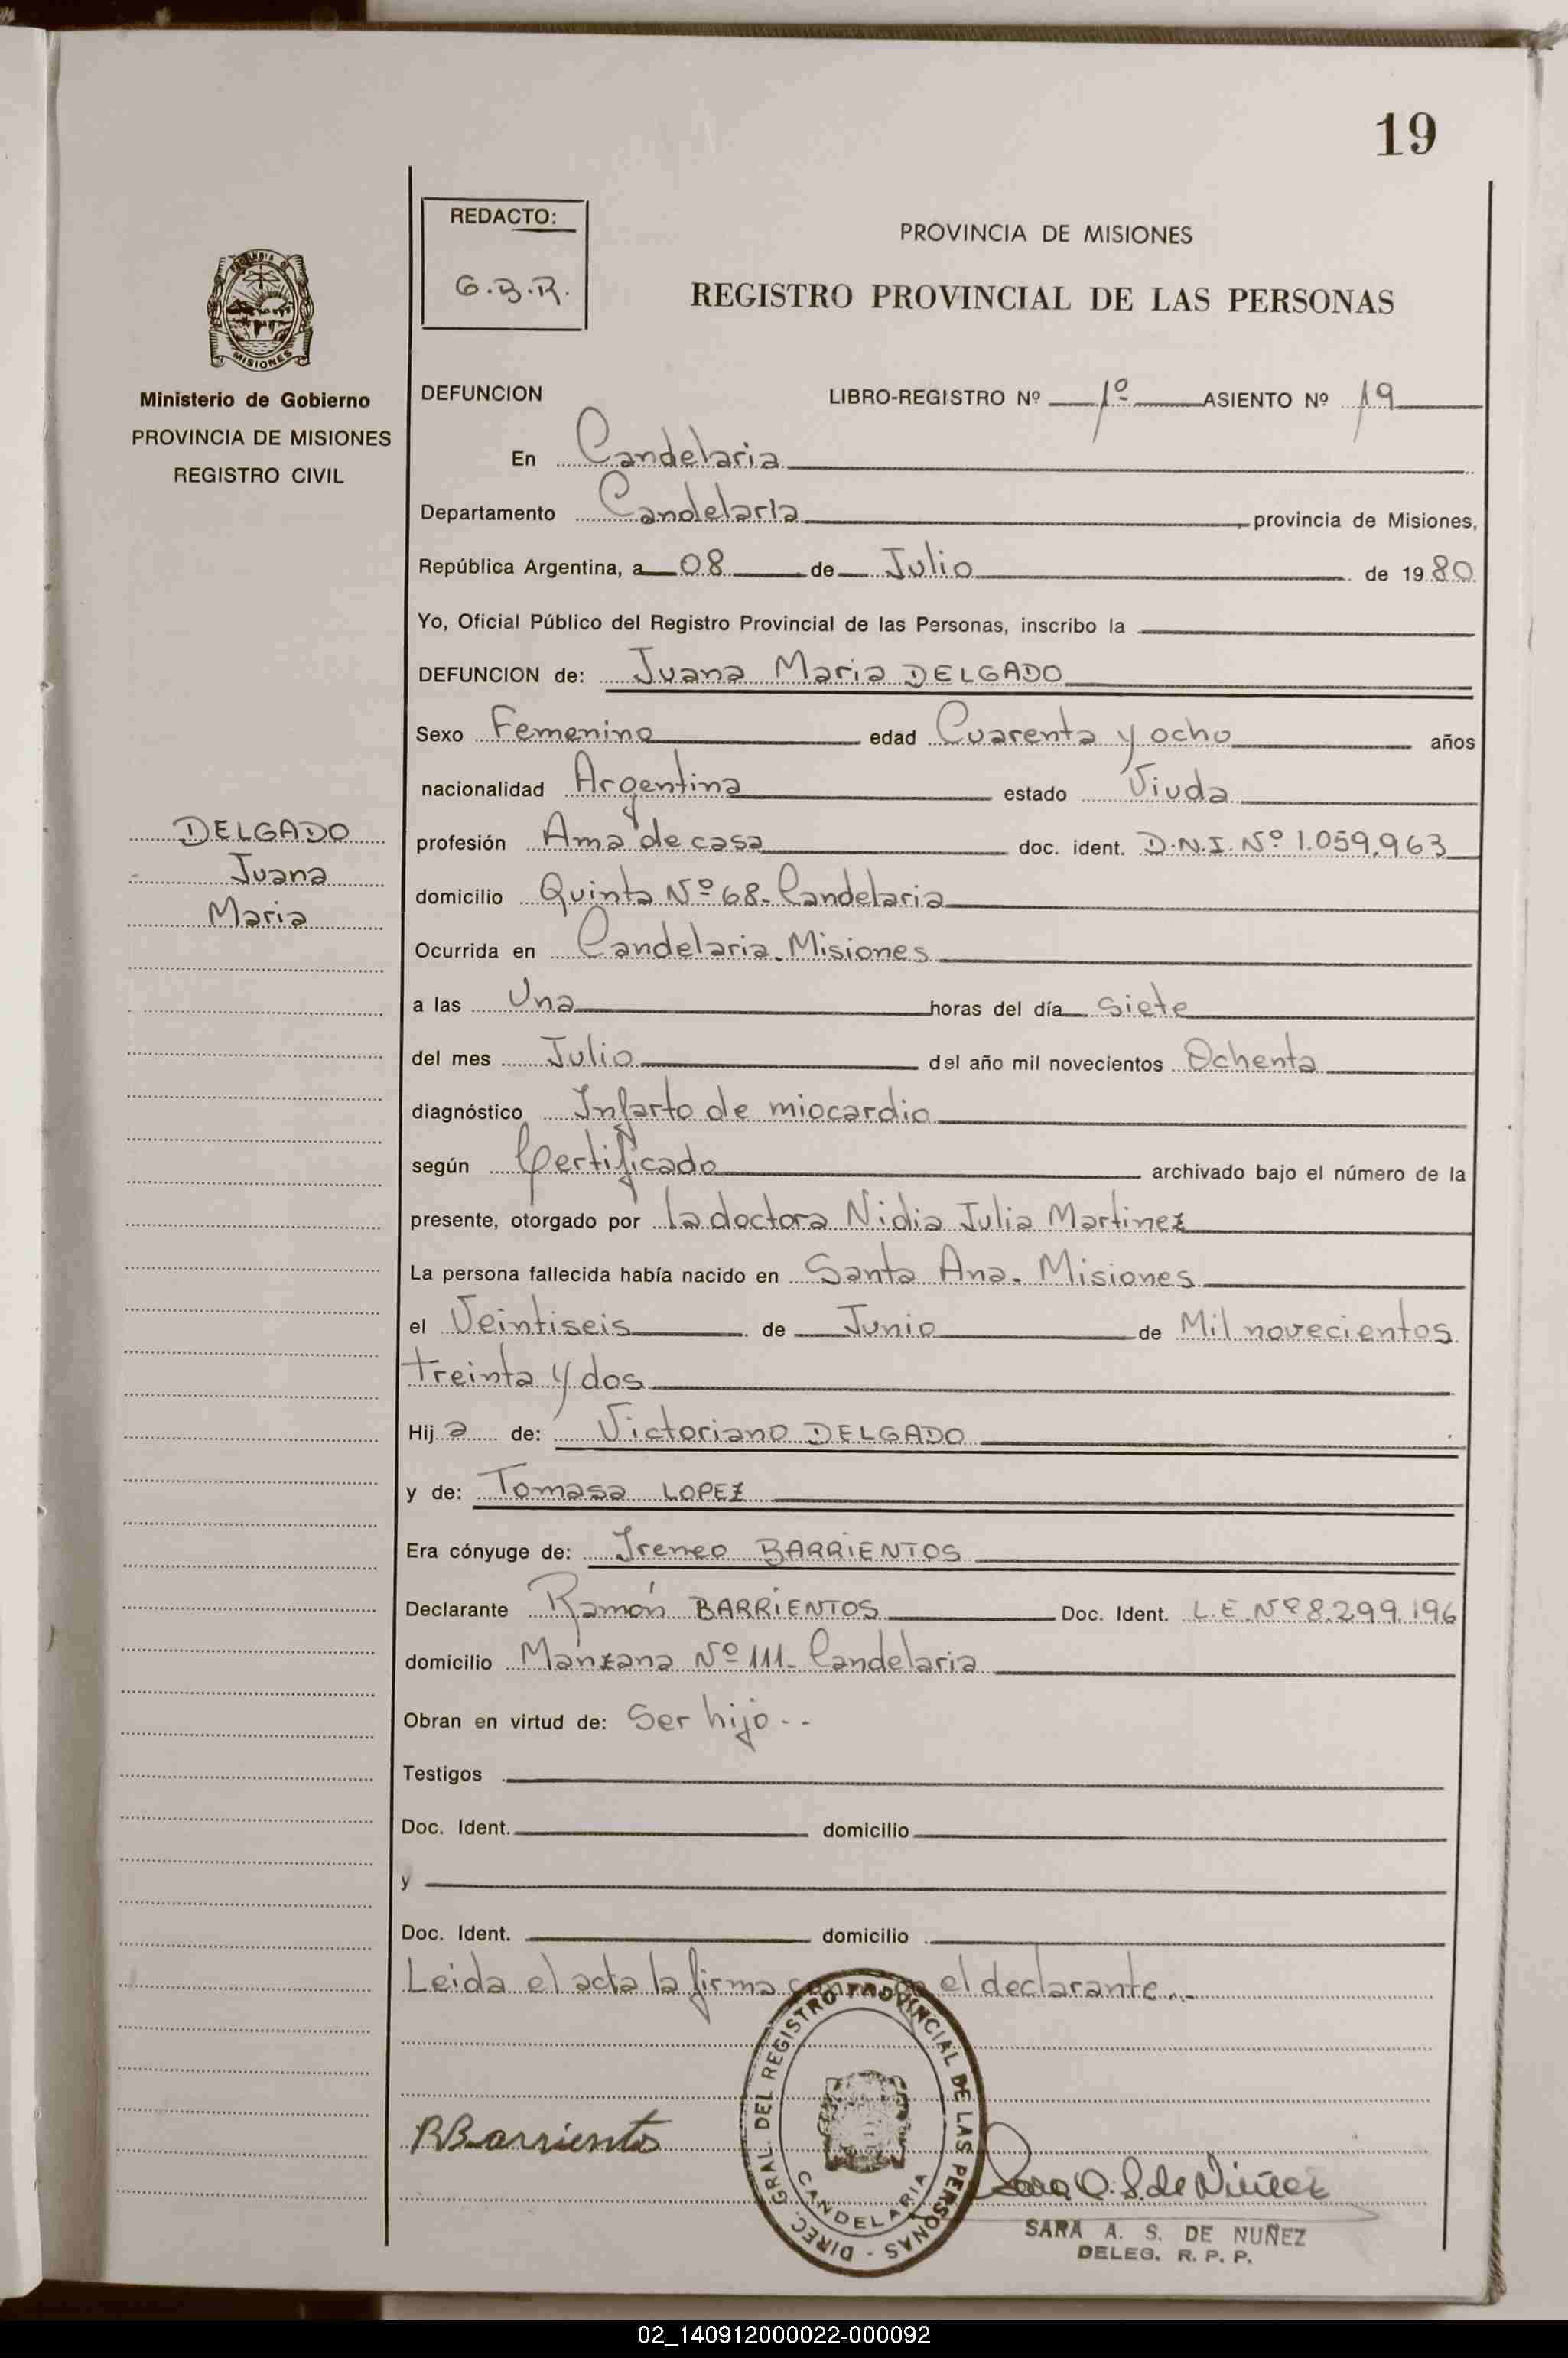 19
REDACTO:
G.B.R.
PROVINCIA DE MISIONES
REGISTRO PROVINCIAL DE LAS PERSONAS
MISIONES
Ministerio de Gobierno
PROVINCIA DE MISIONES
REGISTRO CIVIL
DEFUNCION LIBRO-REGISTRO Nº 1º ASIENTO Nº 19
En Candelaria
Departamento Candelaria, provincia de Misiones,
República Argentina, a 08 de Julio de 1980
Yo, Oficial Público del Registro Provincial de las Personas, inscribo la
DEFUNCION de: Juana Maria DELGADO
Sexo Femenino edad Cuarenta y ocho años
nacionalidad Argentina estado Viuda
DELGADO
Juana
Maria
profesión Ama de casa doc. ident. D.N.I. Nº 1.059.963
domicilio Quinta Nº 68- Candelaria
Ocurrida en Candelaria. Misiones
a las Una horas del día siete
del mes Julio del año mil novecientos Ochenta
diagnóstico Infarto de miocardio
según Certificado archivado bajo el número de la
presente, otorgado por la doctora Nidia Julia Martinez
La persona fallecida había nacido en Santa Ana. Misiones
el Veintiseis de Junio de Mil novecientos
treinta y dos
Hija de: Victoriano DELGADO
y de: Tomasa LOPEZ
Era cónyuge de: Ireneo BARRIENTOS
Declarante Ramón BARRIENTOS Doc. Ident. L.E. Nº 8.299.196
domicilio Manzana Nº 111- Candelaria
Obran en virtud de: Ser hijo--
Testigos
Doc. Ident. domicilio
y
Doc. Ident. domicilio
Leida el acta la firma el declarante..-
DIREC. GRAL. DEL REGISTRO PROVINCIAL DE LAS PERSONAS -
CANDELARIA
RBarrientos
Sara A. S. de Nuñez
SARA A. S. DE NUÑEZ
DELEG. R. P. P.
02_140912000022-000092